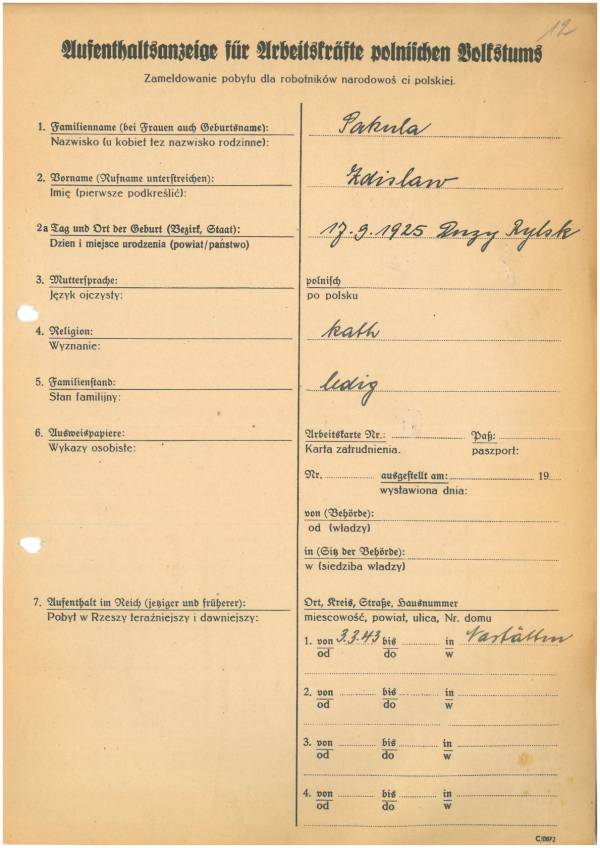 12
Aufenthaltsanzeige für Arbeitskräfte polnischen Volkstums
Zameldowanie pobytu dla robotników narodowoś ci polskiej.
1. Familienname (bei Frauen auch Geburtsname): Pakula
Nazwisko (u kobiet też nazwisko rodzinne):
2. Vorname (Rufname unterstreichen): Zdislaw
Imię (pierwsze podkreślić):
2a Tag und Ort der Geburt (Bezirk, Staat): 17.9.1925 Duzy Rylsk
Dzien i miejsce urodzenia (powiat/państwo)
3. Muttersprache: polnisch
Język ojczysty: po polsku
4. Religion: kath
Wyznanie:
5. Familienstand: ledig
Stan familijny:
6. Ausweispapiere: Arbeitskarte Nr.: Paß:
Wykazy osobiste: Karta zatrudnienia. paszport:
Nr. ausgestellt am: 19
wystawiona dnia:
von (Behörde):
od (władzy)
in (Sitz der Behörde):
w (siedziba władzy)
7. Aufenthalt im Reich (jetziger und früherer): Ort, Kreis, Straße, Hausnummer
Pobyt w Rzeszy teraźniejszy i dawniejszy: miescowość, powiat, ulica, Nr. domu
1. von 3.3.43 bis in Nastätten
od do w
2. von bis in
od do w
3. von bis in
od do w
4. von bis in
od do w
C/0872